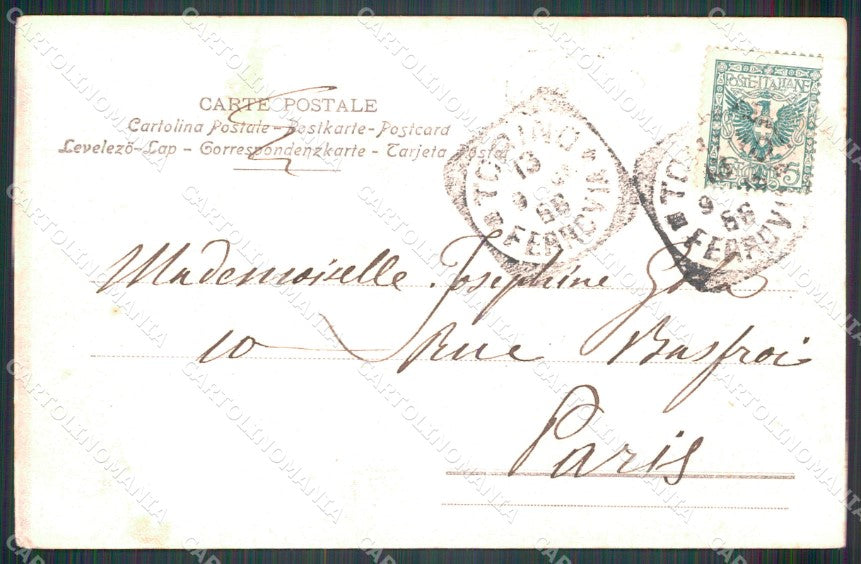 CARTE POSTALE
Cartolina Postale - Postkarte - Postcard
Levelező-Lap - Correspondenzkarte - Tarjeta Postal
POSTE ITALIANE
5
TORINO
13
9
FERROVIA
TORINO
9
FERROVIA
Mademoiselle Josephine
10 Rue Basfroi
Paris
CARTOLINOMANIA